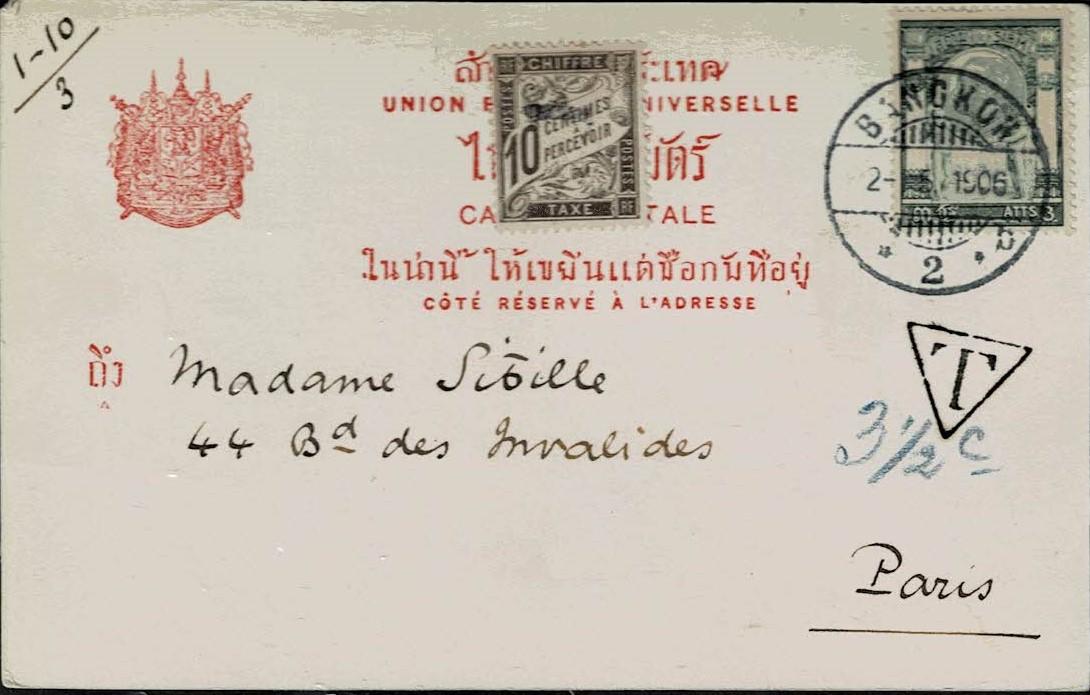 1-10
3
สำ ระเทศ
UNION NIVERSELLE
ไ บัตร์
CA TALE
ในน่านี้ ให้เขยีนแต่ชื่อกับที่อยู่
CÔTÉ RÉSERVÉ À L'ADRESSE
CHIFFRE
POSTES
10 CENTIMES
À PERCEVOIR
POSTES
TAXE RF
ATTS 3
BANGKOK
2- 5 1906
2
T
3 1/2 c
ถึง Madame Sibille
44 Bd des Invalides
Paris